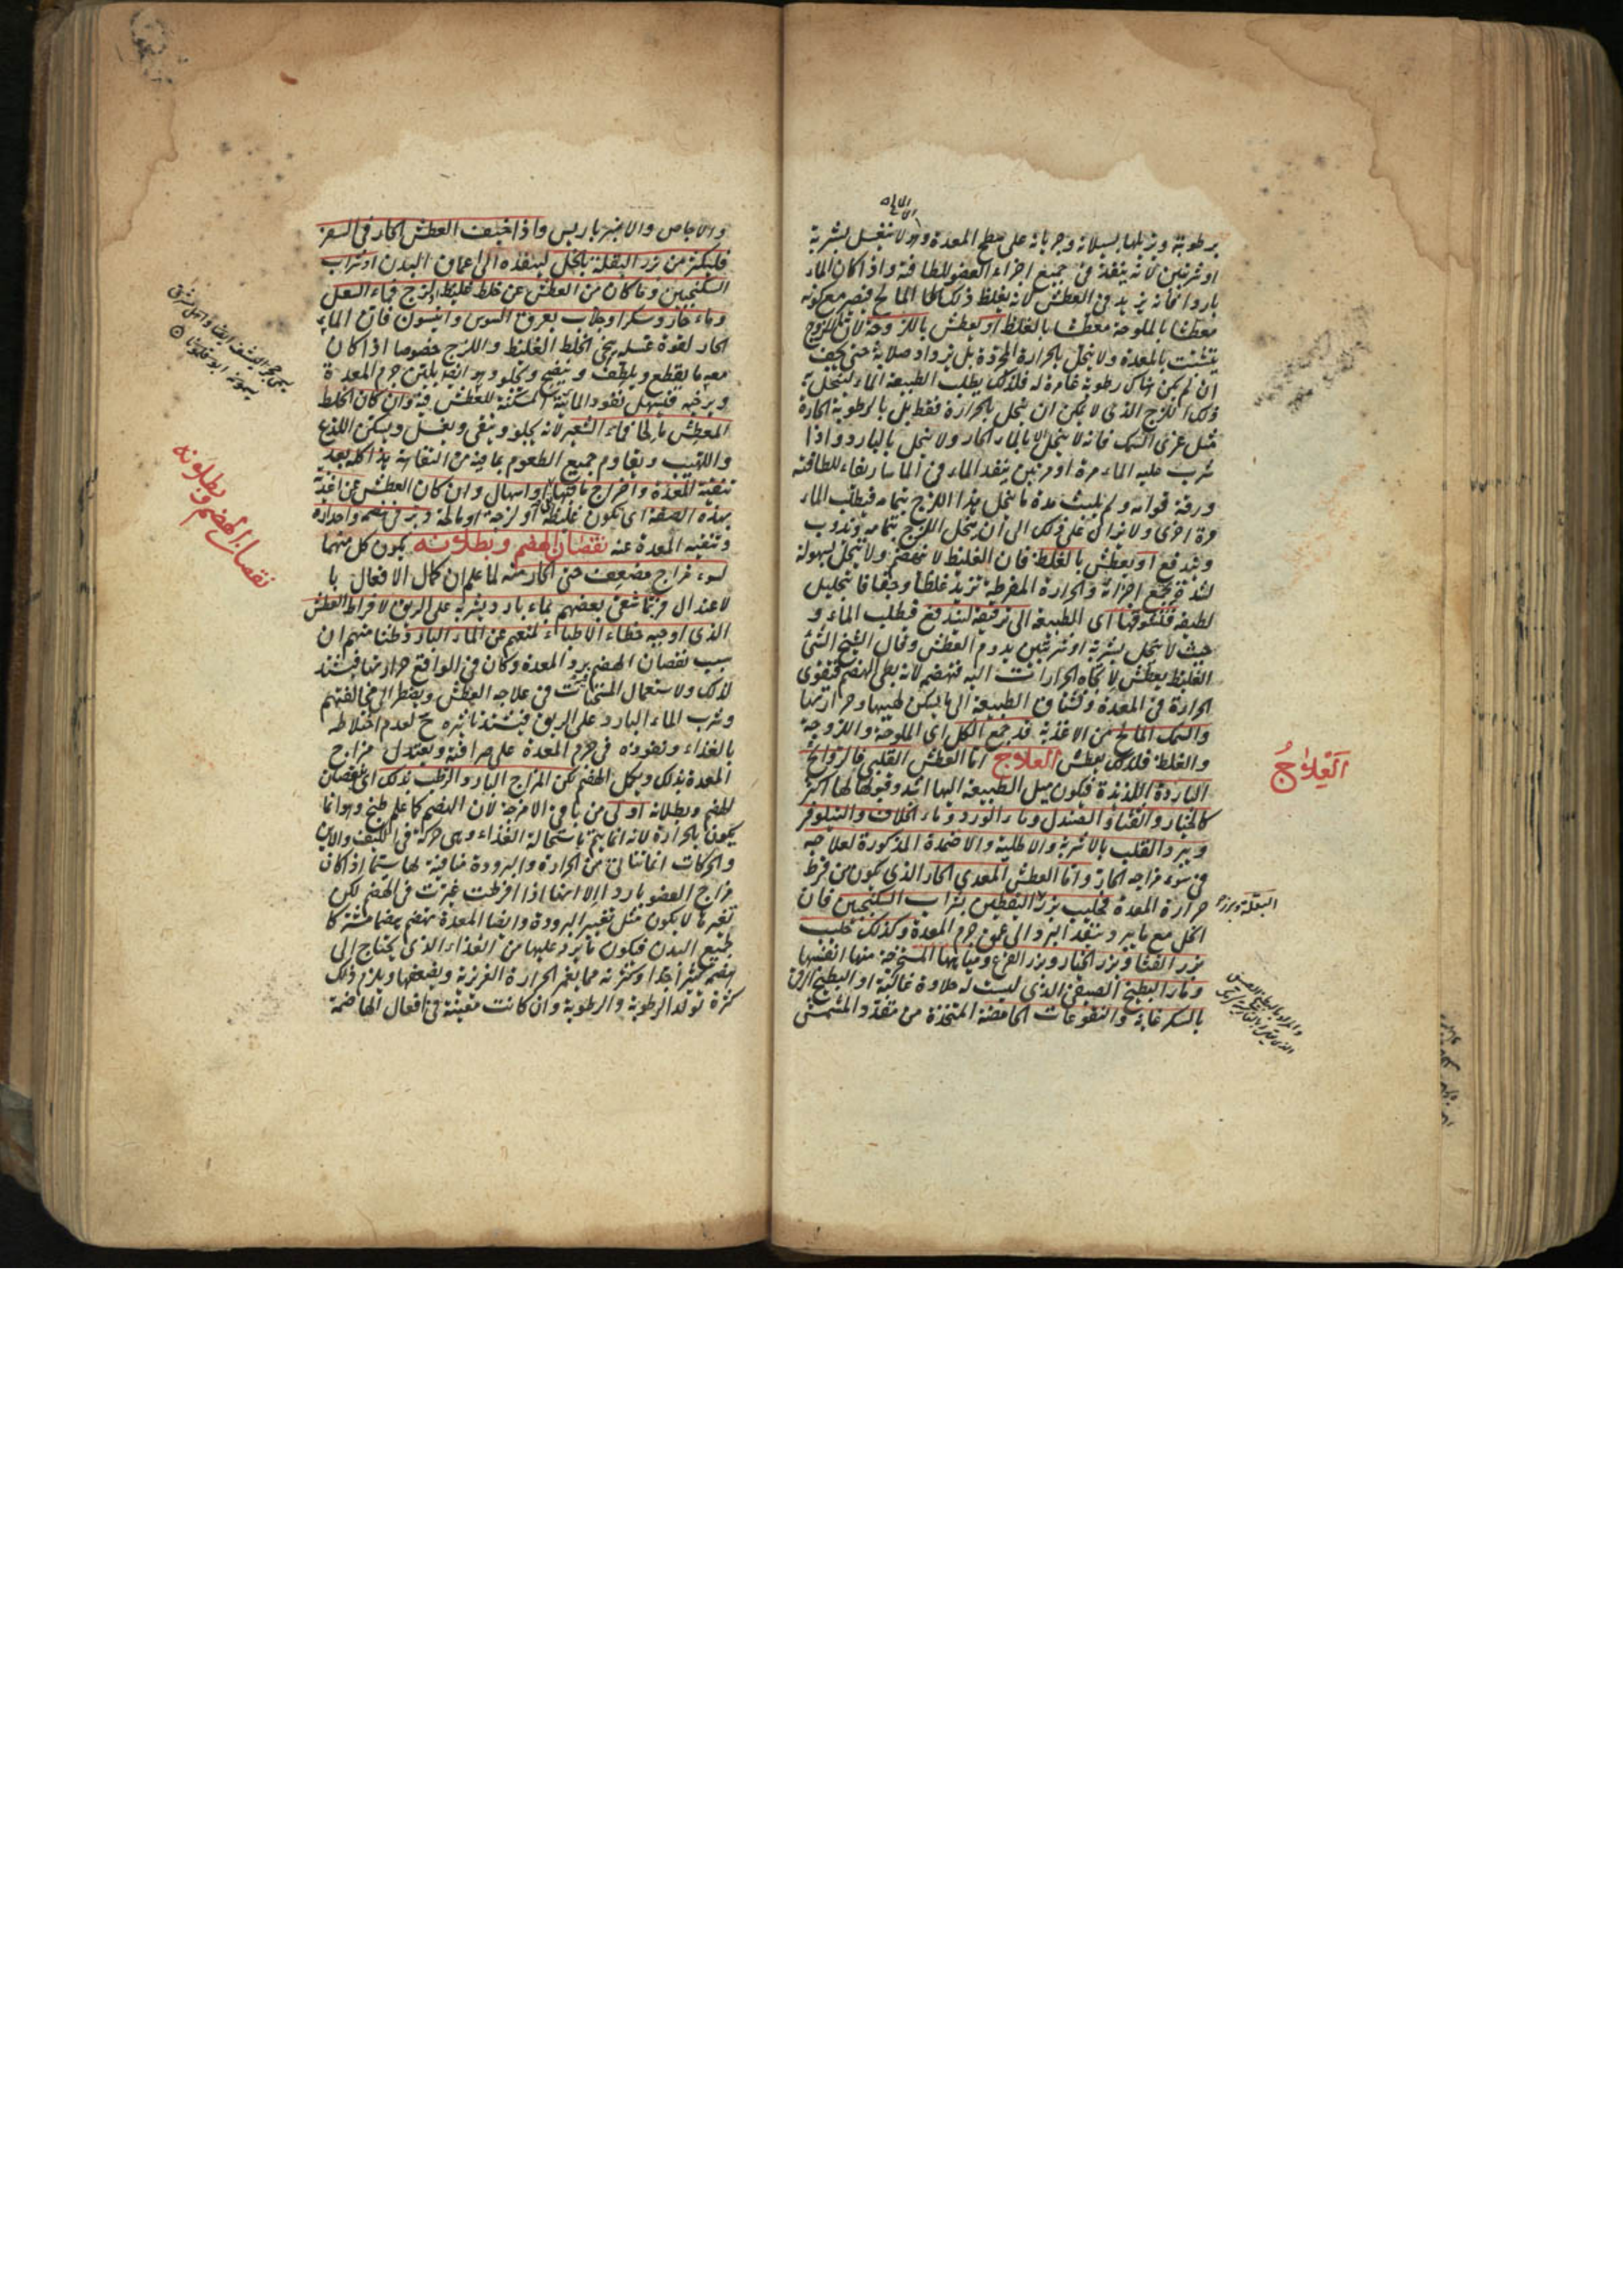 برطوبته ويزيلها بسيلانه وجريانه على سطح المعدة وهو لا ينغسل بشربة
او شربتين لانه ينفذ في جميع اجزاء العضو للطافته واذا كان الماء
باردا فانه يزيد في العطش لانه يغلظ ذلك المالح فيصير مع كونه
معطشا بالملوحة معطشا بالغلظ او يعطش باللزوجة لان اللزوج
يتشبث بالمعدة ولا ينحل بالحرارة المجردة بل يزداد صلابة حتى يجف
ان لم يكن هناك رطوبة غامرة له فلذلك يطلب الطبيعة الماء لينحل به
ذلك اللزج الذي لا يمكن ان ينحل بالحرارة فقط بل بالرطوبة الحارة
مثل غرى السمك فانه لا ينحل الا بالماء الحار ولا ينحل بالبارد واذا
شرب عليه الماء مرة او مرتين ينفذ الماء في الماساريقاء للطافته
ورقة قوامه ولم يلبث مدة ما ينحل هذا اللزج بتمامه فيطلب الماء
مرة اخرى ولا يزال على ذلك الى ان ينحل اللزج بتمامه ويذوب
ويندفع او يعطش بالغلظ فان الغليظ لا ينهضم ولا ينحل بسهولة
لشدة تجمع اجزائه والحرارة المفرطة تزيد غلظا وجفافا بتحليل
لطيفه فتشوقها اي الطبيعة الى ترقيقه ليندفع فيطلب الماء و
حيث لا ينحل بشربة او شربتين يدوم العطش وقال الشيخ الشئ
الغليظ يعطش لاتجاه الحرارات اليه فتهضم لانه بطي الهضم فتقوى
الحرارة في المعدة وتشتاق الطبيعة الى ما يسكن لهيبها وحرارتها
والسمك المالح من الاغذية قد جمع الكل اي الملوحة واللزوجة
والغلظ فلذلك يعطش العلاج اما العطش القلبي فالروائح
الباردة اللذيذة فيكون ميل الطبيعة اليها اشد وقبولها لها اكثر
كالخيار والقثاء والصندل وماء الورد وماء الخلاف والنيلوفر
ويبرد القلب بالاشربة والاطلية والاضمدة المذكورة لعلاجه
في سوء مزاجه الحار واما العطش المعدي الحار الذي يكون من فرط
حرارة المعدة فحليب بزر اليقطين بشراب السكنجبين فان
الخل مع ما يبرد ينفذ البرد الى عمق جرم المعدة وكذلك حليب
بزر القثاء وبزر الخيار وبزر القرع ومياهها المستخرجة منها انفسها
وماء البطيخ الصيفي الذي ليست له حلاوة غالبة او البطيخ الرقي
بالسكر غاية والنقوعات الحامضة المتخذة من مقدد المشمش
العلاج
البقلة وبزر
والاجاص والامبرباريس واذا خيف العطش الحار في السفر
فليكثر من بزر البقلة بالخل لينفذه الى اعماق البدن او شراب
السكنجبين وما كان من العطش عن خلط غليظ او لزج فماء العسل
وماء حار وسكر او جلاب بعرق السوس وانيسون فان الماء
الحار لقوة غسله يسخن الخلط الغليظ واللزج خصوصا اذا كان
معه ما يقطع ويلطف وينضج ويجلو وهو ايضا يلين جرم المعدة
ويرخيه فيسهل نفوذ المائية المسكنة للعطش فيه وان كان الخلط
المعطش مالحا فماء الشعير لانه يجلو وينقي ويغسل ويسكن اللذع
واللهيب ويقاوم جميع الطعوم بما فيه من التفاهة هذا كله بعد
تنقية المعدة واخراج ما فيها او اسهال وان كان العطش عن اغذية
بهذه الصفة اي يكون غليظة او لزجة او مالحة دبر في هضمها واحدارها
وتنقية المعدة عنه نقصان الهضم وبطلانه يكون كل منهما
لسوء مزاج مضعف حتى الحار منه لما علم ان كمال الافعال با
لاعتدال فربما شفى بعضهم بماء بارد يشربه على الريق لافراط العطش
الذي اوجبه خطاء الاطباء لمنعهم عن الماء البارد ظنا منهم ان
سبب نقصان الهضم برد المعدة وكان في الواقع حرارتها فيشتد
لذلك ولاستعمال المسخنات في علاجه العطش ويضطر الى مخالفتهم
وشرب الماء البارد على الريق فيشتد تاثيره ح لعدم اختلاطه
بالغذاء ونفوذه في جرم المعدة على صرافته ويعتدل مزاج
المعدة بذلك ويكمل الهضم لكن المزاج البارد والرطب بذلك اي نقصان
الهضم وبطلانه اولى من باقي الامزجة لان الهضم كما علم طبخ وهو انما
يكون بالحرارة لانه انما يتم باستحالة الغذاء وهي حركة في الكيف والاين
والحركات انما تتاتى من الحرارة والبرودة منافية لها سيما اذا كان
مزاج العضو باردا الا انها اذا افرطت غيرت في الهضم لكن
تغيرها لا يكون مثل تغيير البرودة وايضا المعدة تهضم هضما مشتركا
لجميع البدن فيكون ما يرد عليها من الغذاء الذي يحتاج الى
هضم كثيرا جدا وكثرته مما يغمر الحرارة الغريزية ويضعفها ويلزم ذلك
كثرة تولد الرطوبة والرطوبة وان كانت معينة في افعال الهاضمة
نقصان الهضم وبطلانه